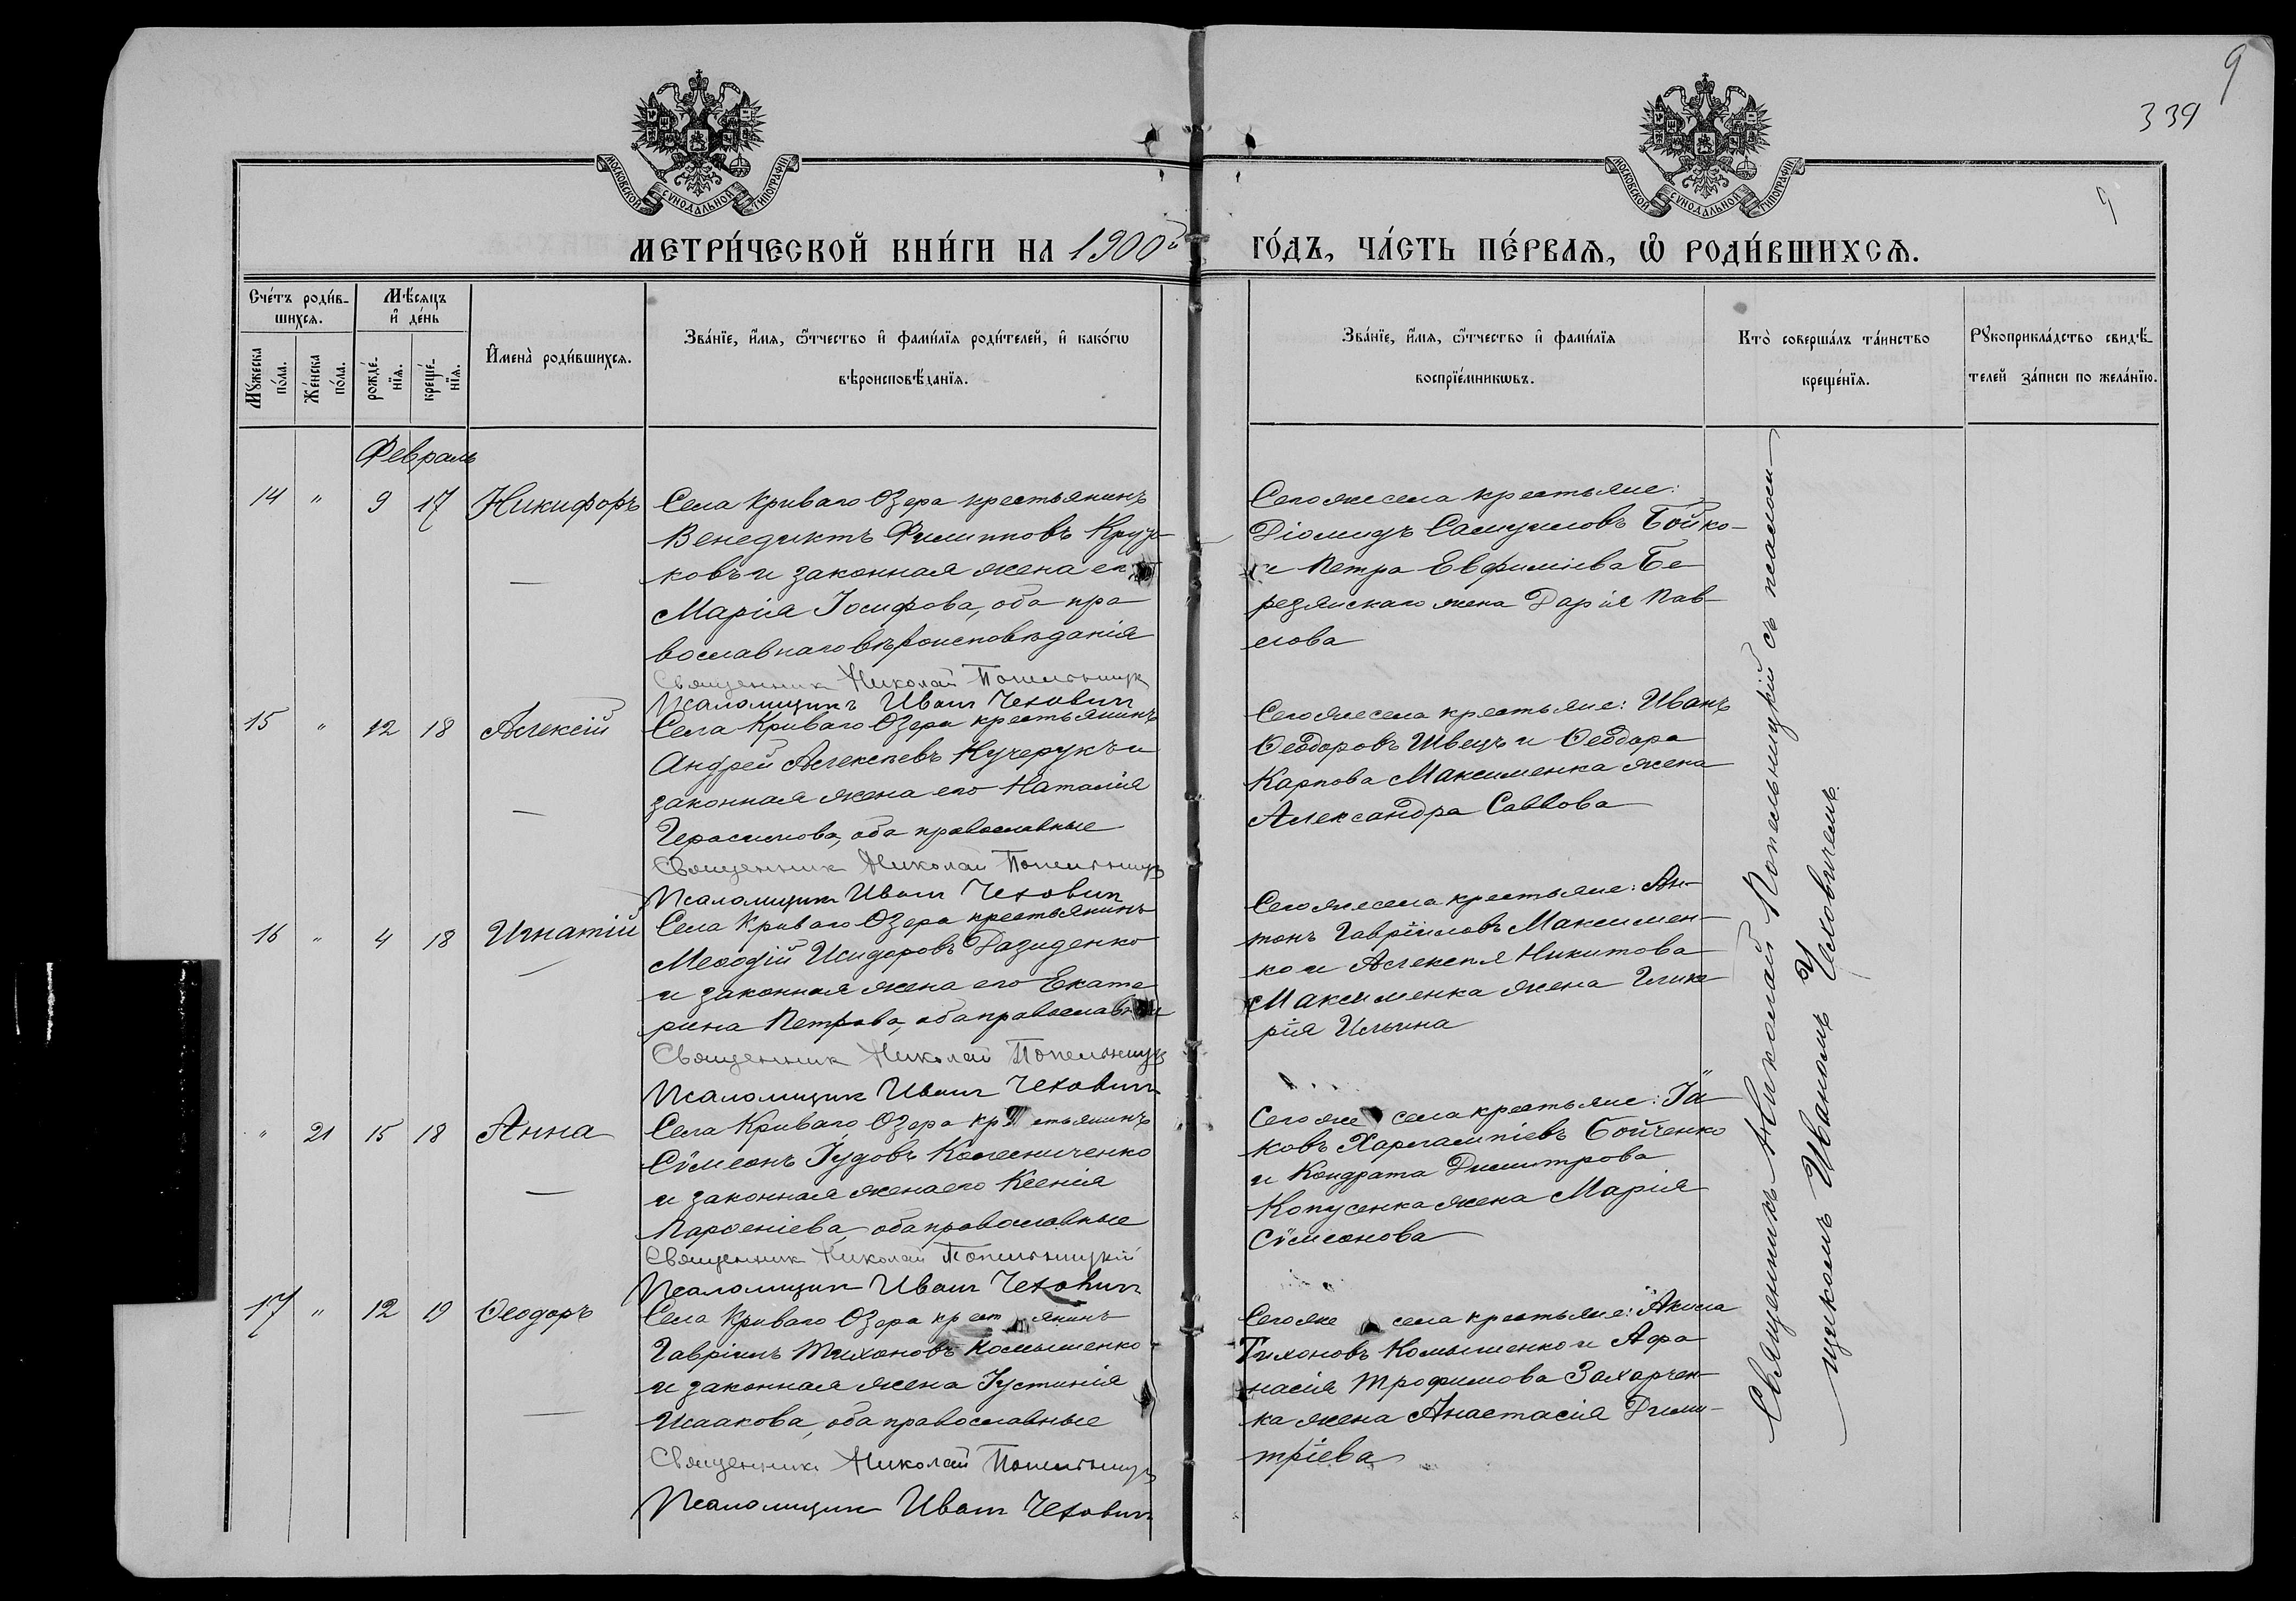 9
339
9
МОСКОВСКОЙ СУНОДАЛЬНОЙ ТИПОГРАФІИ
МОСКОВСКОЙ СУНОДАЛЬНОЙ ТИПОГРАФІИ
МЕТРИ́ЧЕСКОЙ КНИ́ГИ НА 1900й
ГО́ДЪ, ЧА́СТЬ ПЕ́РВАЯ, Ѿ РОДИ́ВШИХСЯ.
Сче́тъ роди́в-
шихся.
Мѣ́сяцъ
и҆ де́нь
Мꙋ́жеска
по́ла.
Же́нска
по́ла.
рожде́-
нїя.
креще́-
нїя.
И҆мена̀ роди́вшихся.
Зва́нїе, и҆́мя, ѻ҆́тчество и҆ фами́лїя роди́телей, и҆ како́гѡ
вѣроисповѣ́данїя.
Зва́нїе, и҆́мя, ѻ҆́тчество и҆ фами́лїя
воспрїе́мникѡвъ.
Кто̀ соверша́лъ та́инство
креще́нїя.
Рꙋкоприкла́дство свидѣ́-
телей за́писи по жела́нїю.
Февраль
14 " 9 17 Никифоръ
Села Криваго Озера крестьянинъ
Венедиктъ Филипповъ
ковъ и законная жена его
Марія Іосифова, оба пра
вославнаго вѣроисповѣданія
Священник Николай Попельницк
Псаломщикъ Иван Чехович
Сего же села крестьяне:
Діомидъ Самуиловъ Бойко
и Петра Евфиміева Бе
резянскаго жена Дарія Пав-
лова
15 " 12 18 Алексій
Села Криваго Озера крестьянинъ
Андрей Алексѣевъ Кучерукъ и
законная жена его Наталія
Герасимова, оба православные
Священник Николай Попельницк
Псаломщик Иван Чехович
Сего же села крестьяне: Иванъ
Ѳеодоровъ Швецъ и Ѳеодора
Карпова Максименка жена
Александра Саввова
16 " 4 18 Игнатій
Села Криваго Озера крестьянинъ
Меѳодій Исидоровъ Дазиденко
и законная жена его Екате
рина Петрова, оба православные
Священник Николай Попельницк
Псаломщик Иван Чехович
Сего же села крестьяне: Ан-
тонъ Гавріиловъ Максимен-
ко и Алексѣя Никитова
Максименка жена Глике
рія Ильина
" 21 15 18 Анна
Села Криваго Озера крестьянинъ
Сѵмеонъ Іудовъ Колесниченко
и законная жена его Ксенія
Парѳеніева, оба православные
Священник Николай Попельницкій
Псаломщик Иван Чехович
Сего же села крестьяне: Іа
ковъ Харлампіевъ Бойченко
и Кондрата Димитрова
Копусенка жена Марія
Сѵмеонова
17 " 12 19 Ѳеодоръ
Села Криваго Озера крестьянинъ
Гавріилъ Тихоновъ Комышенко
и законная жена Іустинія
Исаакова, оба православные
Священник Николай Попельницк
Псаломщик Иван Чехович
Сего же села крестьяне: Акила
Тихоновъ Комышенко и Афа
насія Трофимова Захарчен-
ка жена Анастасія Дими-
тріева
Священникъ Николай Попельницкій съ псалом-
щикомъ Иваномъ Чеховичемъ